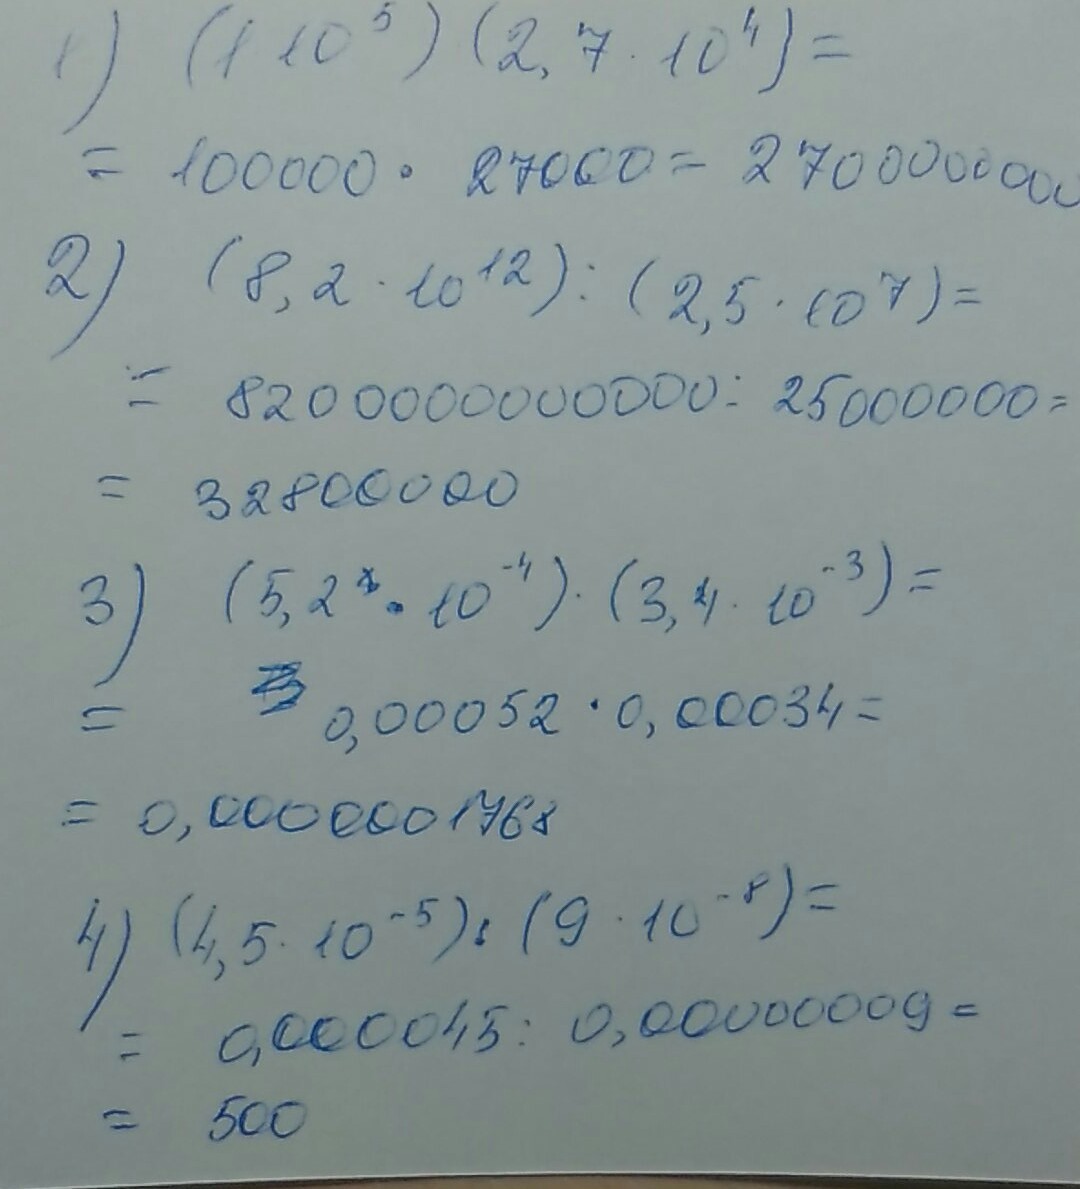 1) (1 10⁵) (2,7 · 10⁴) =
= 100000 · 27000 = 2700000000
2) (8,2 · 10¹²) : (2,5 · 10⁷) =
= 8200000000000 : 25000000 =
= 32800000
3) (5,2 · 10⁻⁴) · (3,4 · 10⁻³) =
= 0,00052 · 0,00034 =
= 0,0000001768
4) (4,5 · 10⁻⁵) : (9 · 10⁻⁸) =
= 0,000045 : 0,00000009 =
= 500